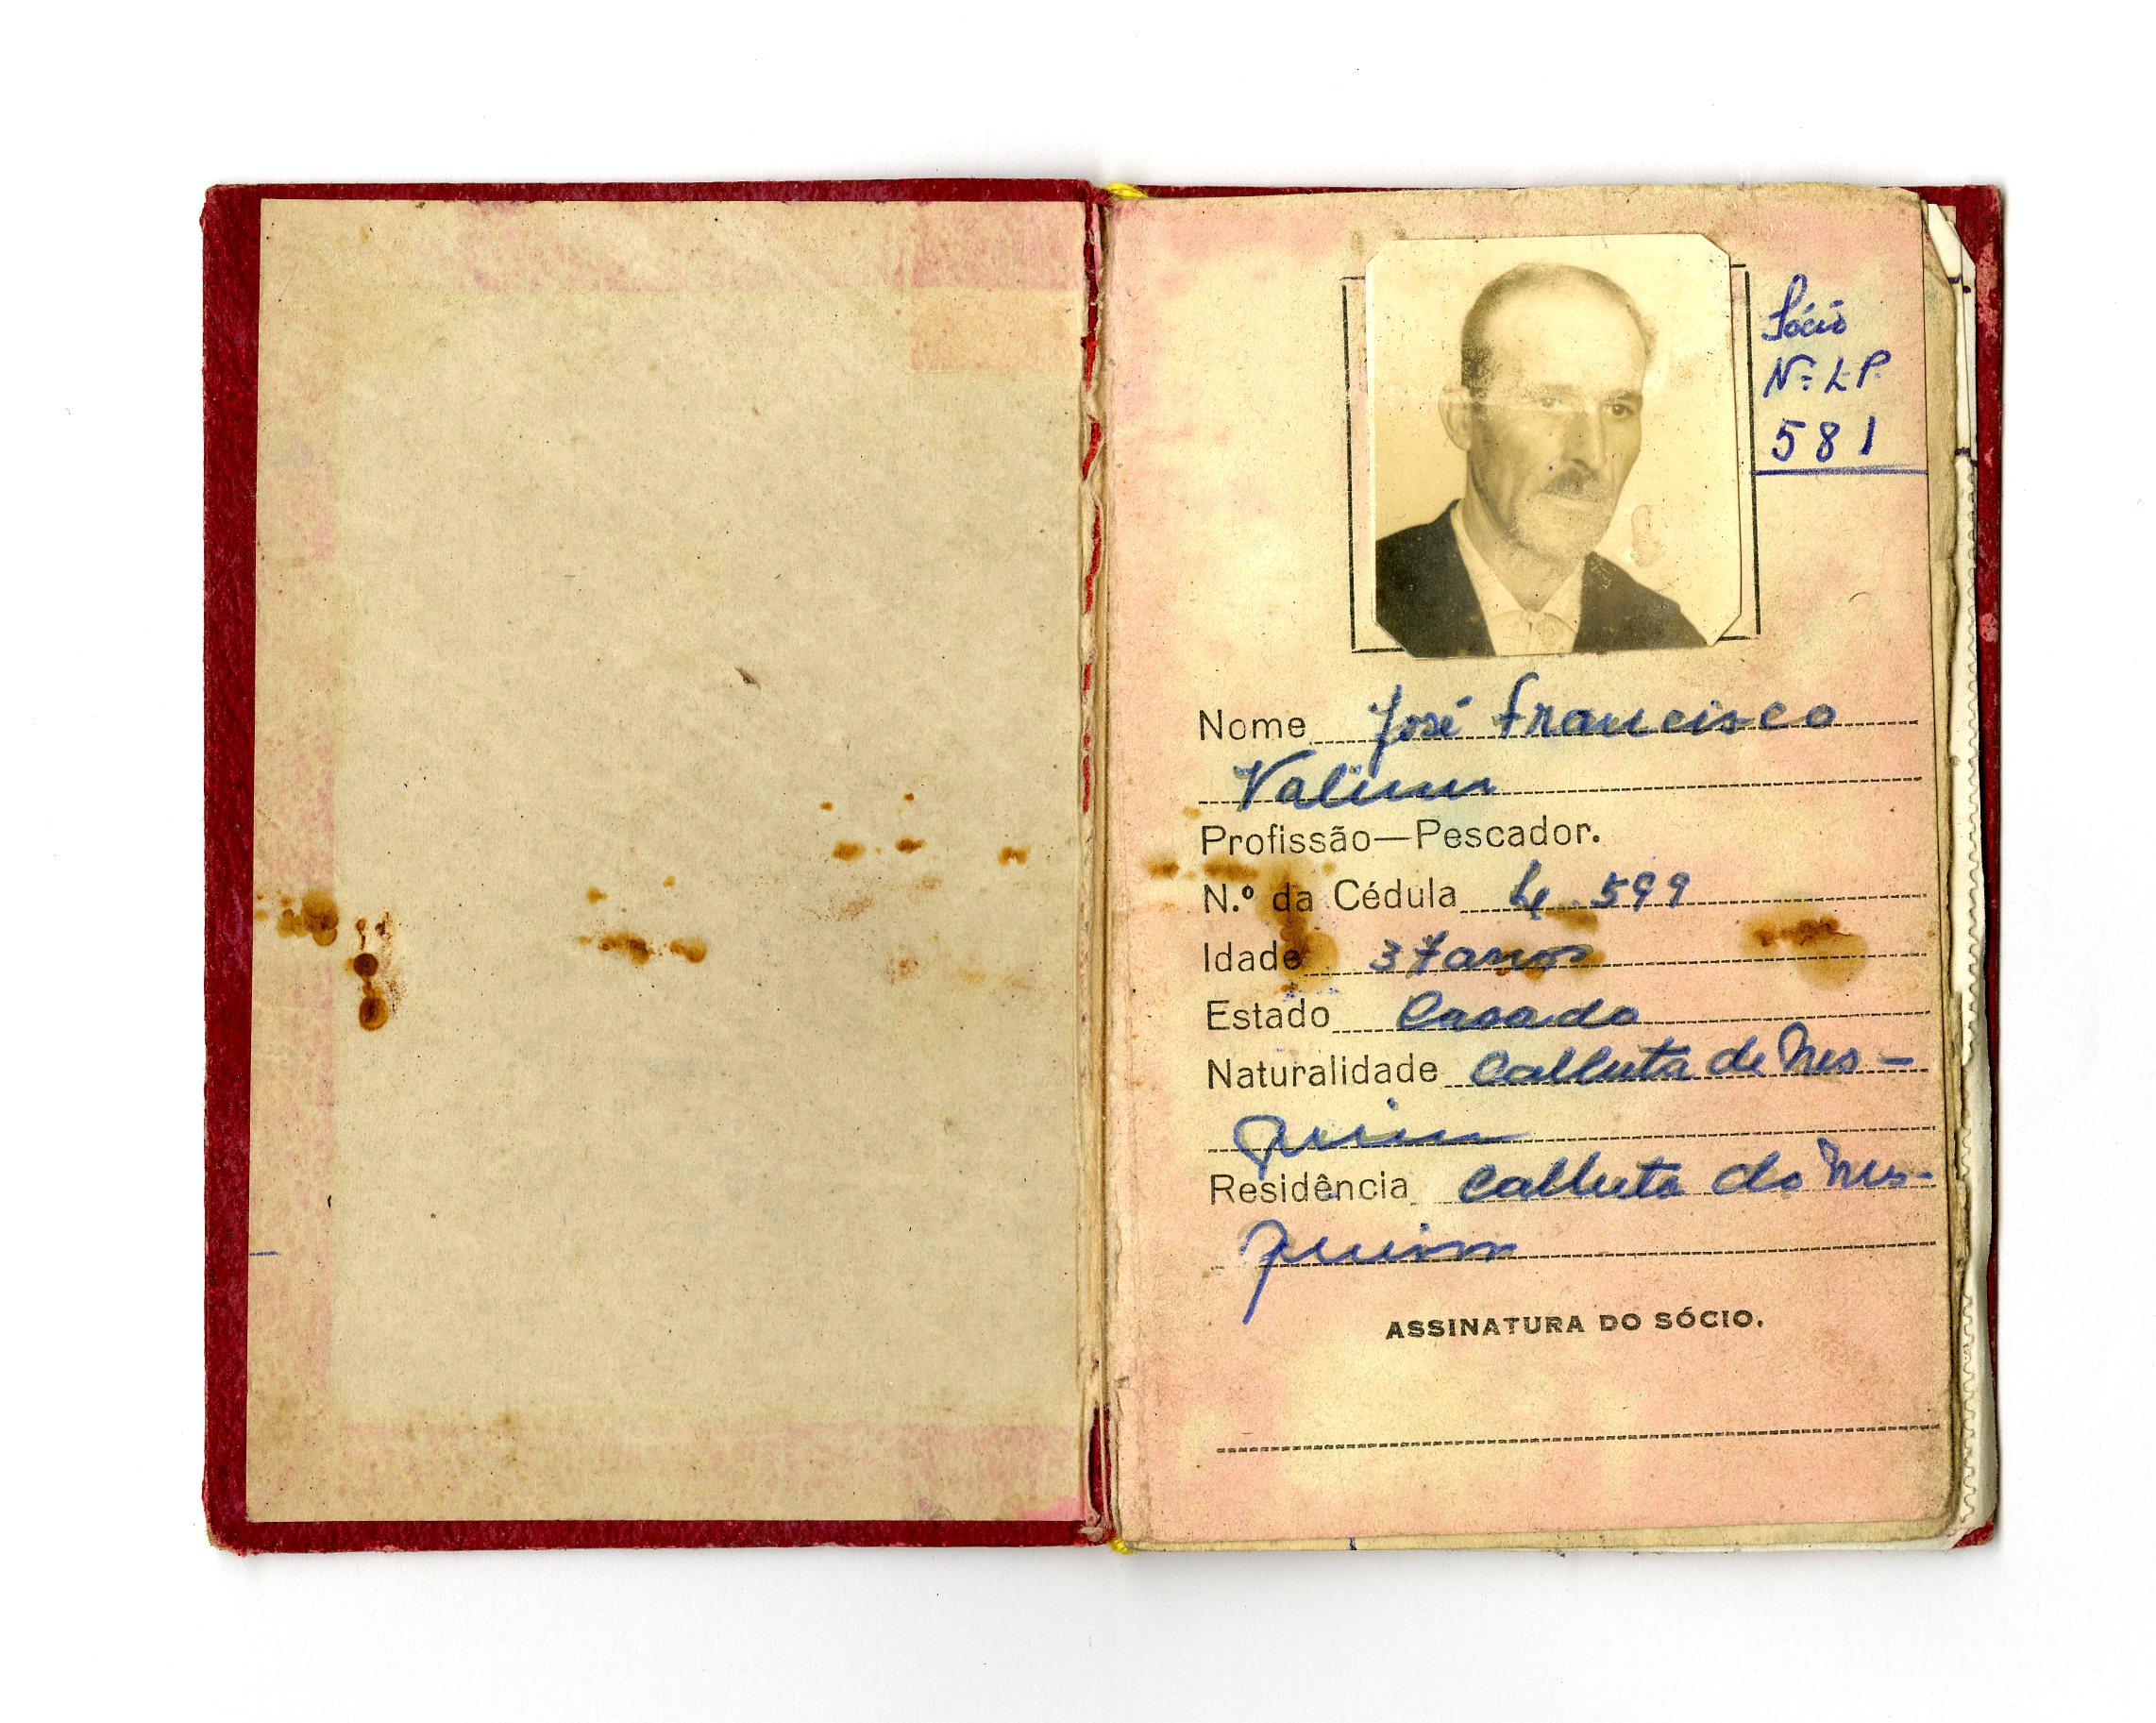 Sócio
Nº L.P.
581
Nome José Francisco
Valim
Profissão—Pescador.
N.º da Cédula 599
Idade 37 anos
Estado Casado
Naturalidade Calheta de Nes-
quim
Residência Calheta do Nes-
quim
ASSINATURA DO SÓCIO.